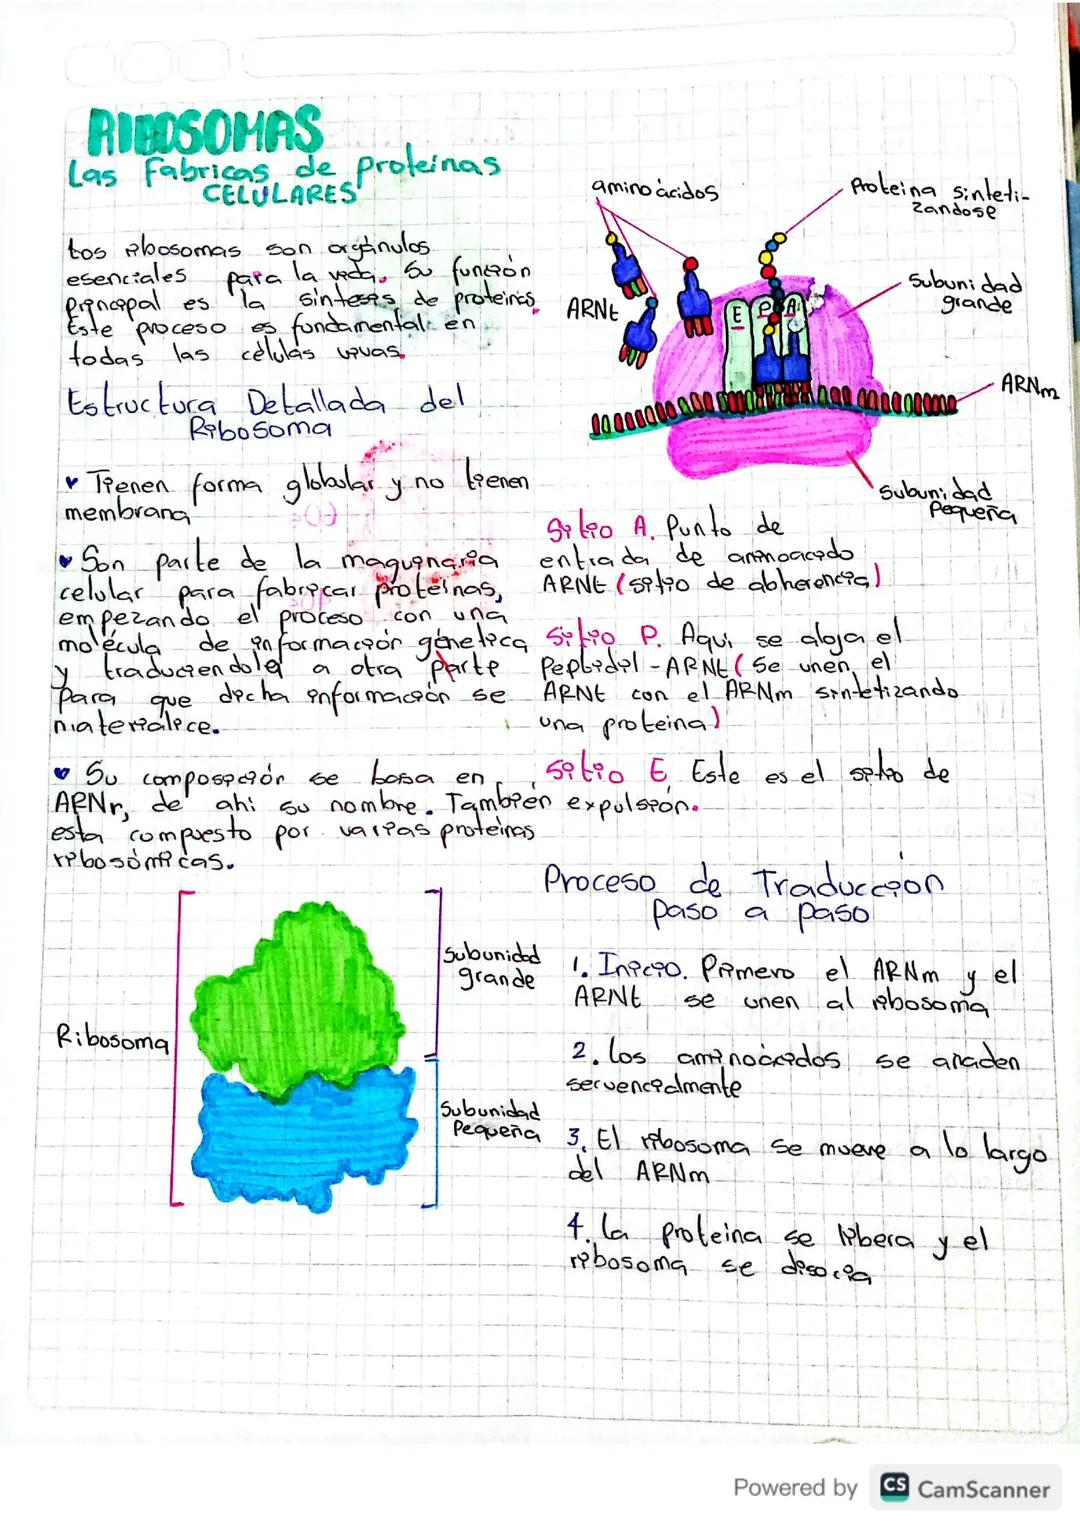 RIBOSOMAS
Las Fabricas de proteinas
CELULARES
Los ribosomas son orgánulos
esenciales para la vida. Su función
principal es la sintesis de proteinas.
Este proceso es fundamental en
todas las células vivas.
Estructura Detallada del
Ribosoma
♥ Tienen forma globular y no tienen
membrana
♥ Son parte de la maquinaria
celular para fabricar proteinas,
empezando el proceso con una
molécula de información génetica
y traduciendola a otra parte
para que dicha información se
materialice.
♥ Su composición se basa en
ARNr, de ahi su nombre. También
esta compuesto por varias proteinas
ribosómicas.
Ribosoma
Subunidad
grande
Subunidad
Pequeña
aminoácidos
Proteina sinteti-
zandose
ARNt
E P A
Subunidad
grande
ARNm
Subunidad
Pequeña
Sitio A. Punto de
entrada de aminoacido
ARNt (sitio de abherencia)
Sitio P. Aqui se aloja el
Peptidil-ARNt (Se unen el
ARNt con el ARNm sintetizando
una proteina)
Sitio E Este es el sitio de
expulsión.
Proceso de Traducción
paso a paso
1. Inicio. Primero el ARNm y el
ARNt se unen al ribosoma
2. Los aminoácidos se anaden
secuencialmente
3. El ribosoma se mueve a lo largo
del ARNm
4. La proteina se libera y el
ribosoma se disocia
Powered by CS CamScanner